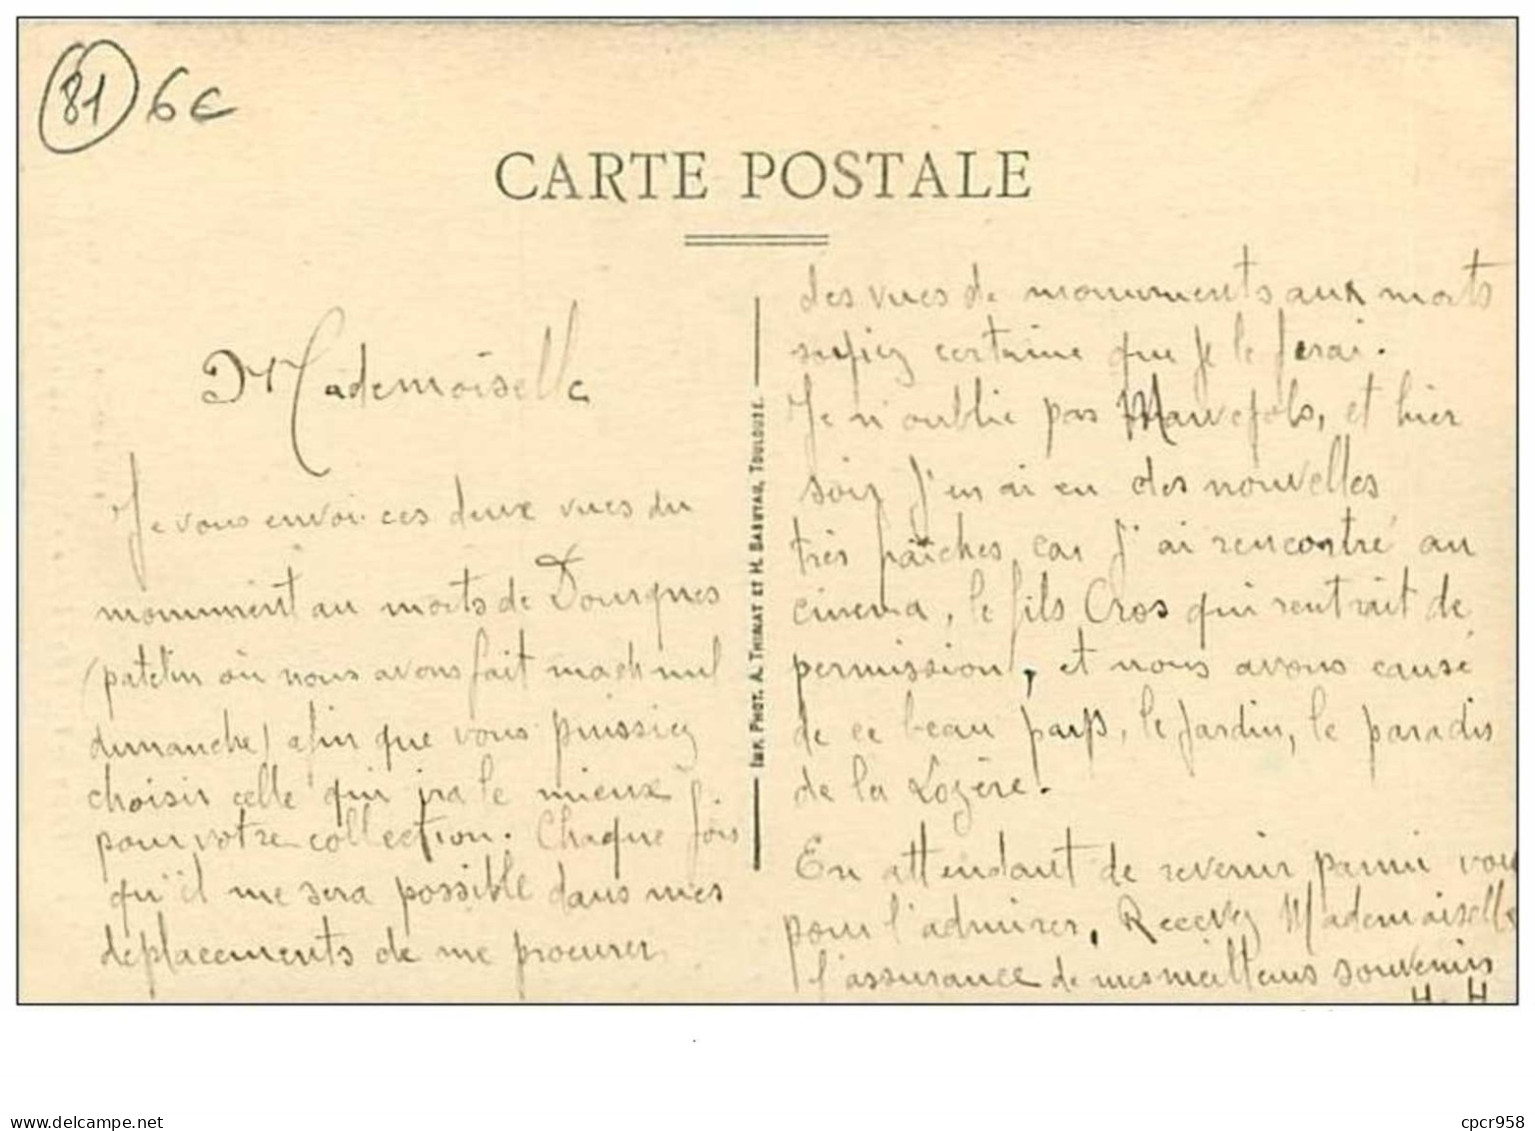 81 6€
CARTE POSTALE
Mademoiselle
Je vous envoi ces deux vues du
monument au morts de Dourgnes
(patelin où nous avons fait match nul
dimanche) afin que vous puissiez
choisir celle qui ira le mieux
pour votre collection. Chaque fois
qu'il me sera possible dans mes
deplacements de me procurer
Imp. Phot. A. Thiriat et H. Basuyau, Toulouse.
des vues de monuments aux morts
soyiez certaine que je le ferai.
Je n'oublie pas Marvejols, et hier
soir j'en ai eu des nouvelles
très fraîches car j'ai rencontré au
cinema, le fils Cros qui rentrait de
permission, et nous avons causé
de ce beau pays, le jardin, le paradis
de la Lozère.
En attendant de revenir parmi vous
pour l'admirer, Recevez Mademoiselle
l'assurance de mes meilleurs souvenirs
H. H
www.delcampe.net
cpcr958